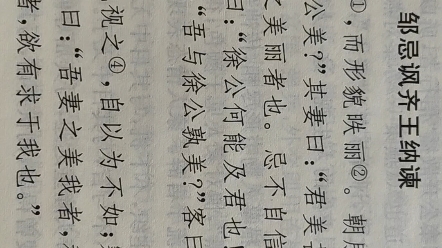 邹忌讽齐王纳谏
①，而形貌昳丽②。朝
公美？”其妻曰：“君美
之美丽者也。忌不自信
曰：“徐公何能及君也！
“吾与徐公孰美？”客曰
视之④，自以为不如；
曰：“吾妻之美我者，
者，欲有求于我也。”